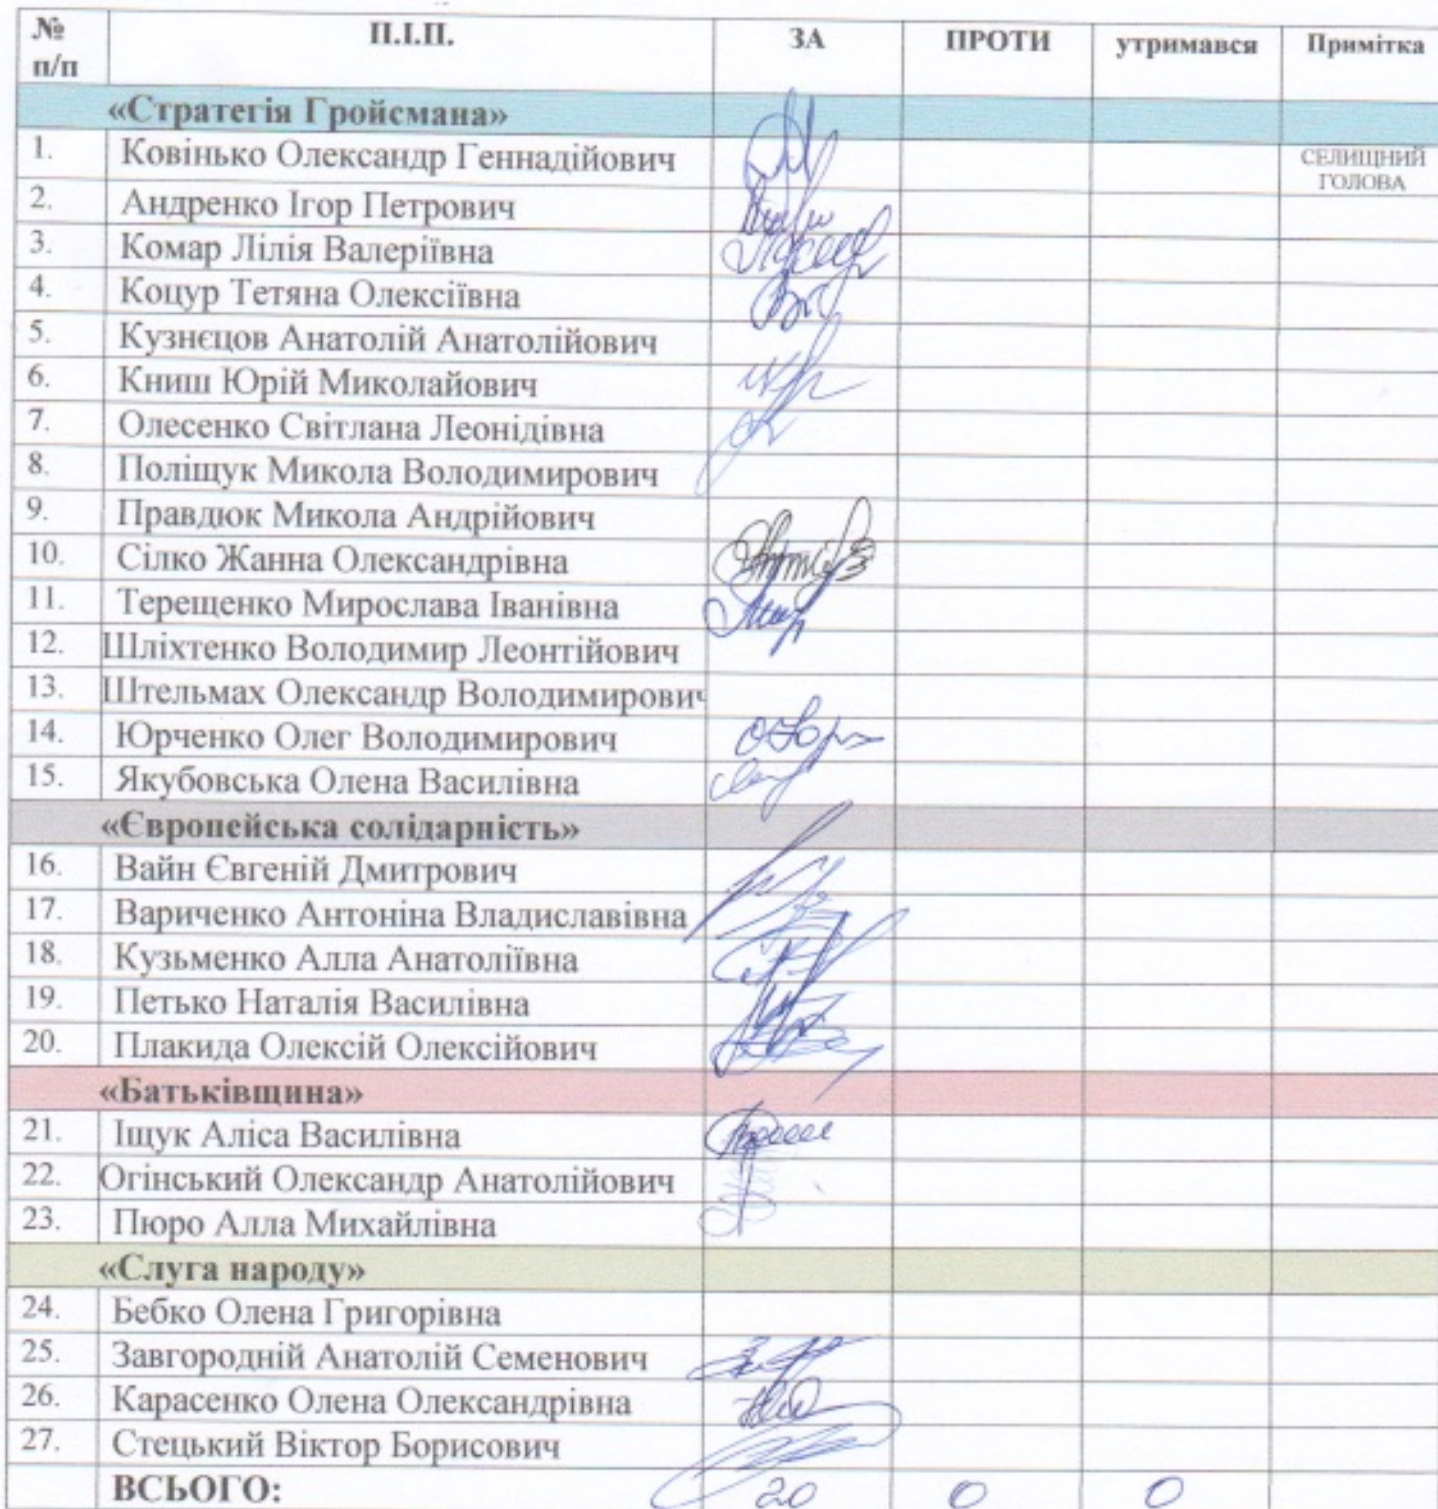 № П.І.П. ЗА ПРОТИ утримався Примітка
п/п
«Стратегія Гройсмана»
1. Ковінько Олександр Геннадійович СЕЛИЩНИЙ ГОЛОВА
2. Андренко Ігор Петрович
3. Комар Лілія Валеріївна
4. Коцур Тетяна Олексіївна
5. Кузнєцов Анатолій Анатолійович
6. Книш Юрій Миколайович
7. Олесенко Світлана Леонідівна
8. Поліщук Микола Володимирович
9. Правдюк Микола Андрійович
10. Сілко Жанна Олександрівна
11. Терещенко Мирослава Іванівна
12. Шліхтенко Володимир Леонтійович
13. Штельмах Олександр Володимирович
14. Юрченко Олег Володимирович
15. Якубовська Олена Василівна
«Європейська солідарність»
16. Вайн Євгеній Дмитрович
17. Вариченко Антоніна Владиславівна
18. Кузьменко Алла Анатоліївна
19. Петько Наталія Василівна
20. Плакида Олексій Олексійович
«Батьківщина»
21. Іщук Аліса Василівна
22. Огінський Олександр Анатолійович
23. Пюро Алла Михайлівна
«Слуга народу»
24. Бебко Олена Григорівна
25. Завгородній Анатолій Семенович
26. Карасенко Олена Олександрівна
27. Стецький Віктор Борисович
ВСЬОГО: 20 0 0